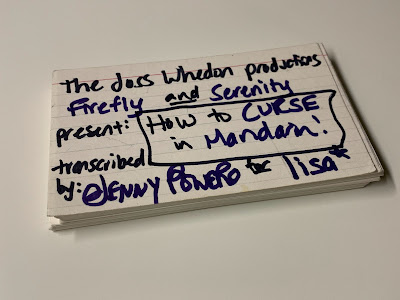 The Joss Whedon productions
Firefly and Serenity
present: How to CURSE
in Mandarin!
transcribed
by: JENNY POWERS for lisa*